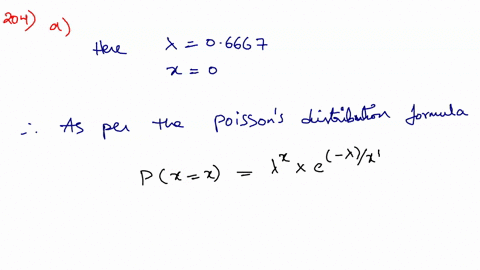 204) a)
Here λ = 0.6667
x = 0
∴ As per the Poisson's distribution formula
P(x=x) = λ^x × e^(-λ)/x!